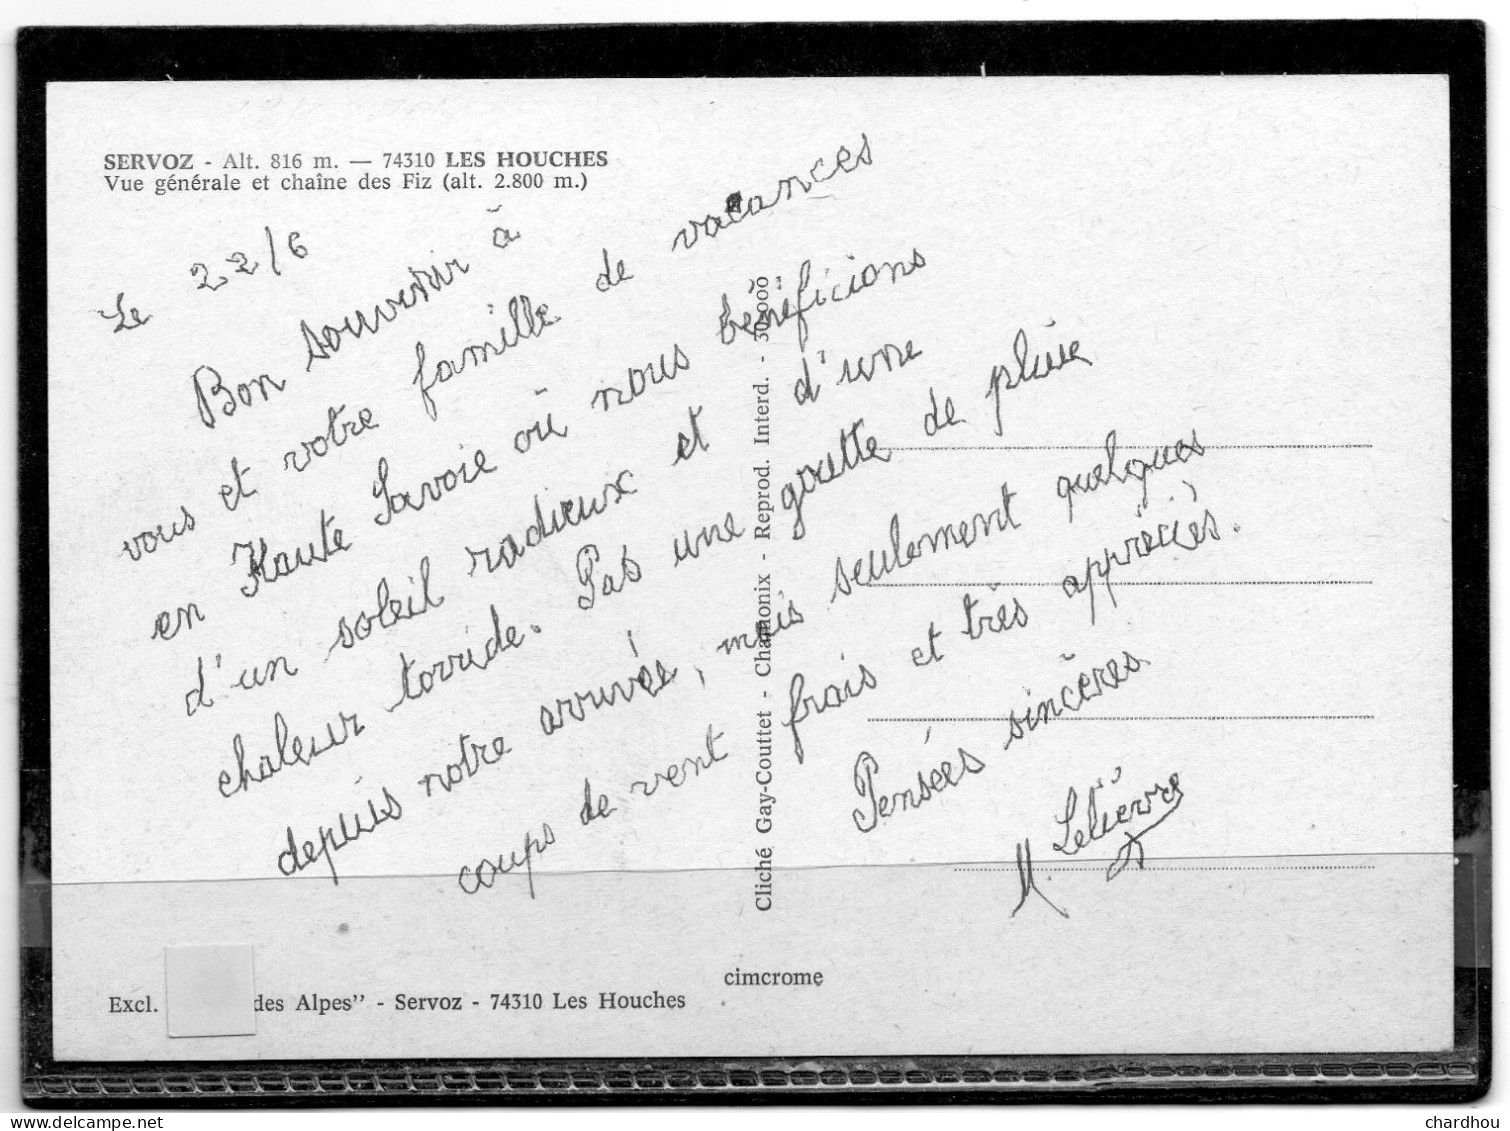 SERVOZ - Alt. 816 m. — 74310 LES HOUCHES
Vue générale et chaîne des Fiz (alt. 2.800 m.)
Le 22/6
Bon souvenir à
vous et votre famille de vacances
en Haute Savoie où nous bénéficions
d'un soleil radieux et d'une
chaleur torride. Pas une goutte de pluie
depuis notre arrivée, mais seulement quelques
coups de vent frais et très appréciés.
Pensées sincères
M. Lelièvre
Cliché Gay-Couttet - Chamonix - Reprod. Interd. -
cimcrome
Excl. des Alpes" - Servoz - 74310 Les Houches
delcampe.net
chardhou